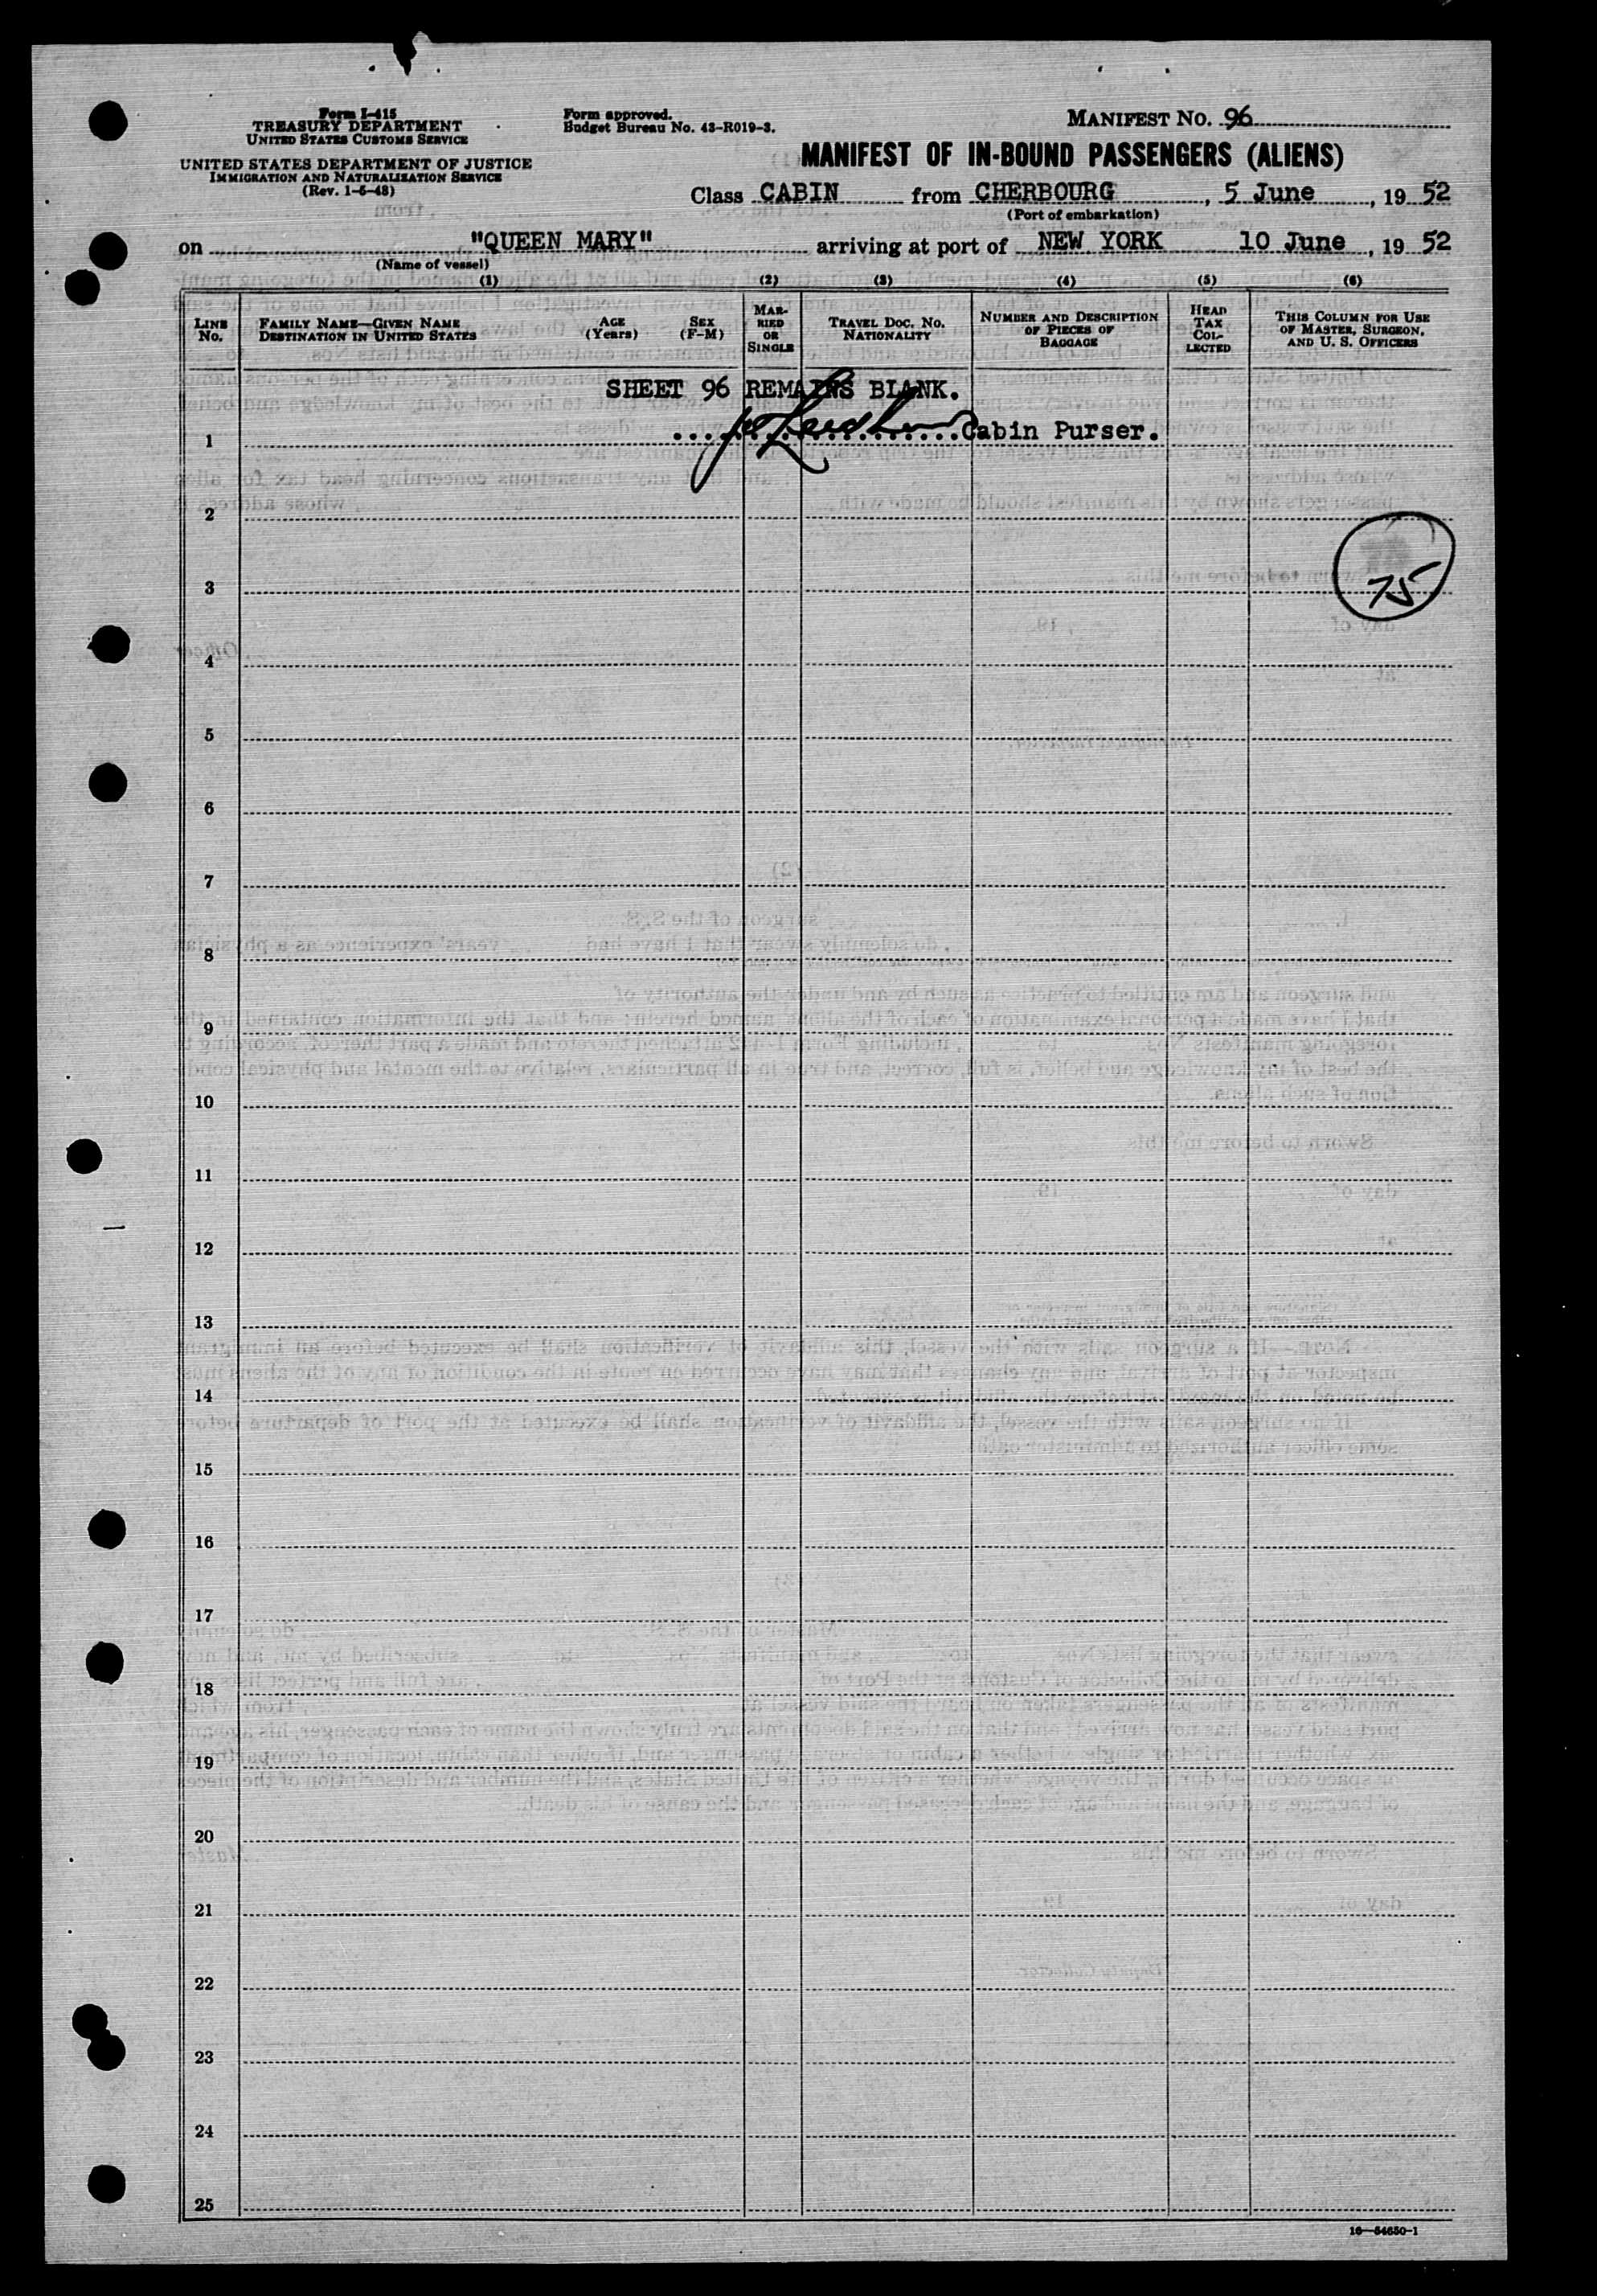 Form I-415
TREASURY DEPARTMENT
UNITED STATES CUSTOMS SERVICE
UNITED STATES DEPARTMENT OF JUSTICE
IMMIGRATION AND NATURALIZATION SERVICE
(Rev. 1-6-48)
Form approved.
Budget Bureau No. 43-R019-3.
MANIFEST NO. 96
MANIFEST OF IN-BOUND PASSENGERS (ALIENS)
Class CABIN from CHERBOURG, 5 June, 19 52
(Port of embarkation)
on "QUEEN MARY" arriving at port of NEW YORK 10 June, 19 52
(Name of vessel)
(1) (2) (3) (4) (5) (6)
LINE No.
FAMILY NAME—GIVEN NAME
DESTINATION IN UNITED STATES
AGE (Years)
SEX (F-M)
MARRIED OR SINGLE
TRAVEL DOC. NO.
NATIONALITY
NUMBER AND DESCRIPTION OF PIECES OF BAGGAGE
HEAD TAX COLLECTED
THIS COLUMN FOR USE OF MASTER, SURGEON, AND U. S. OFFICERS
SHEET 96 REMAINS BLANK.
1 Cabin Purser.
2
75
3
4
5
6
7
8
9
10
11
12
13
14
15
16
17
18
19
20
21
22
23
24
25
16—54650-1